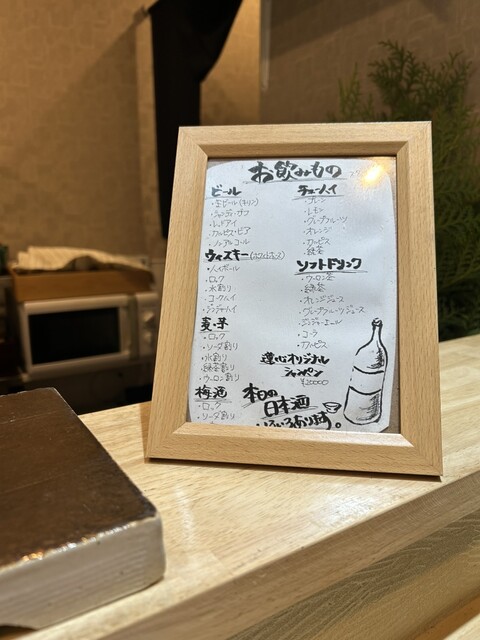 お飲みもの
ビール
・生ビール(キリン)
・シャンディ・ガフ
・レッドアイ
・カルピス・ビア
・ノンアルコール
ウィスキー(ホワイトホース)
・ハイボール
・ロック
・水割り
・コークハイ
・ジンジャーハイ
麦・芋
・ロック
・ソーダ割り
・水割り
・緑茶割り
・ウーロン割り
梅酒
・ロック
・ソーダ割り
チューハイ
・プレーン
・レモン
・グレープフルーツ
・オレンジ
・カルピス
・緑茶
ソフトドリンク
・ウーロン茶
・緑茶
・オレンジジュース
・グレープフルーツジュース
・ジンジャーエール
・コーラ
・カルピス
オリジナル
シャンパン
¥20000
本日の
日本酒
いろいろあります。